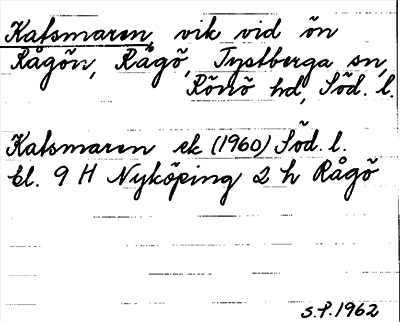 Katsmaren, vik vid ön
Rågön, Rågö, Tystberga sn,
Rönö hd, Söd. l.
Katsmaren ek (1960) Söd. l.
bl. 9 H Nyköping 2 h Rågö
S.P. 1962